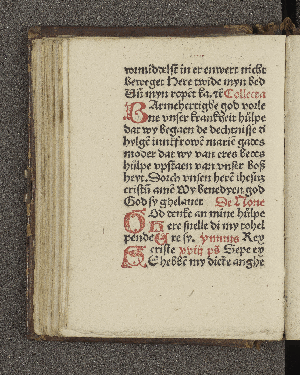 vormiddelst in er enwert nicht
beweget Here twide myn bed
Uñ myn ropēt ka. zē Collecta
Barmehertigbe god vorle
ne vnser krankheit hülpe
dat wy begaen de dechtnisse d̄
hylgē iunkfrowē mariē gades
moder dat wy van eres bedes
hülpe vpstaen van vnser boß
heyt. Dorch vnsen herē ihesū
cristū amē Wy benedyen god
God sy ghelauet De None
God denke an mine hülpe
Here snelle di my to hel
pende Ere sy. ymnus Rey
criste ps Sepe ey
Shebbē my dicke anghe